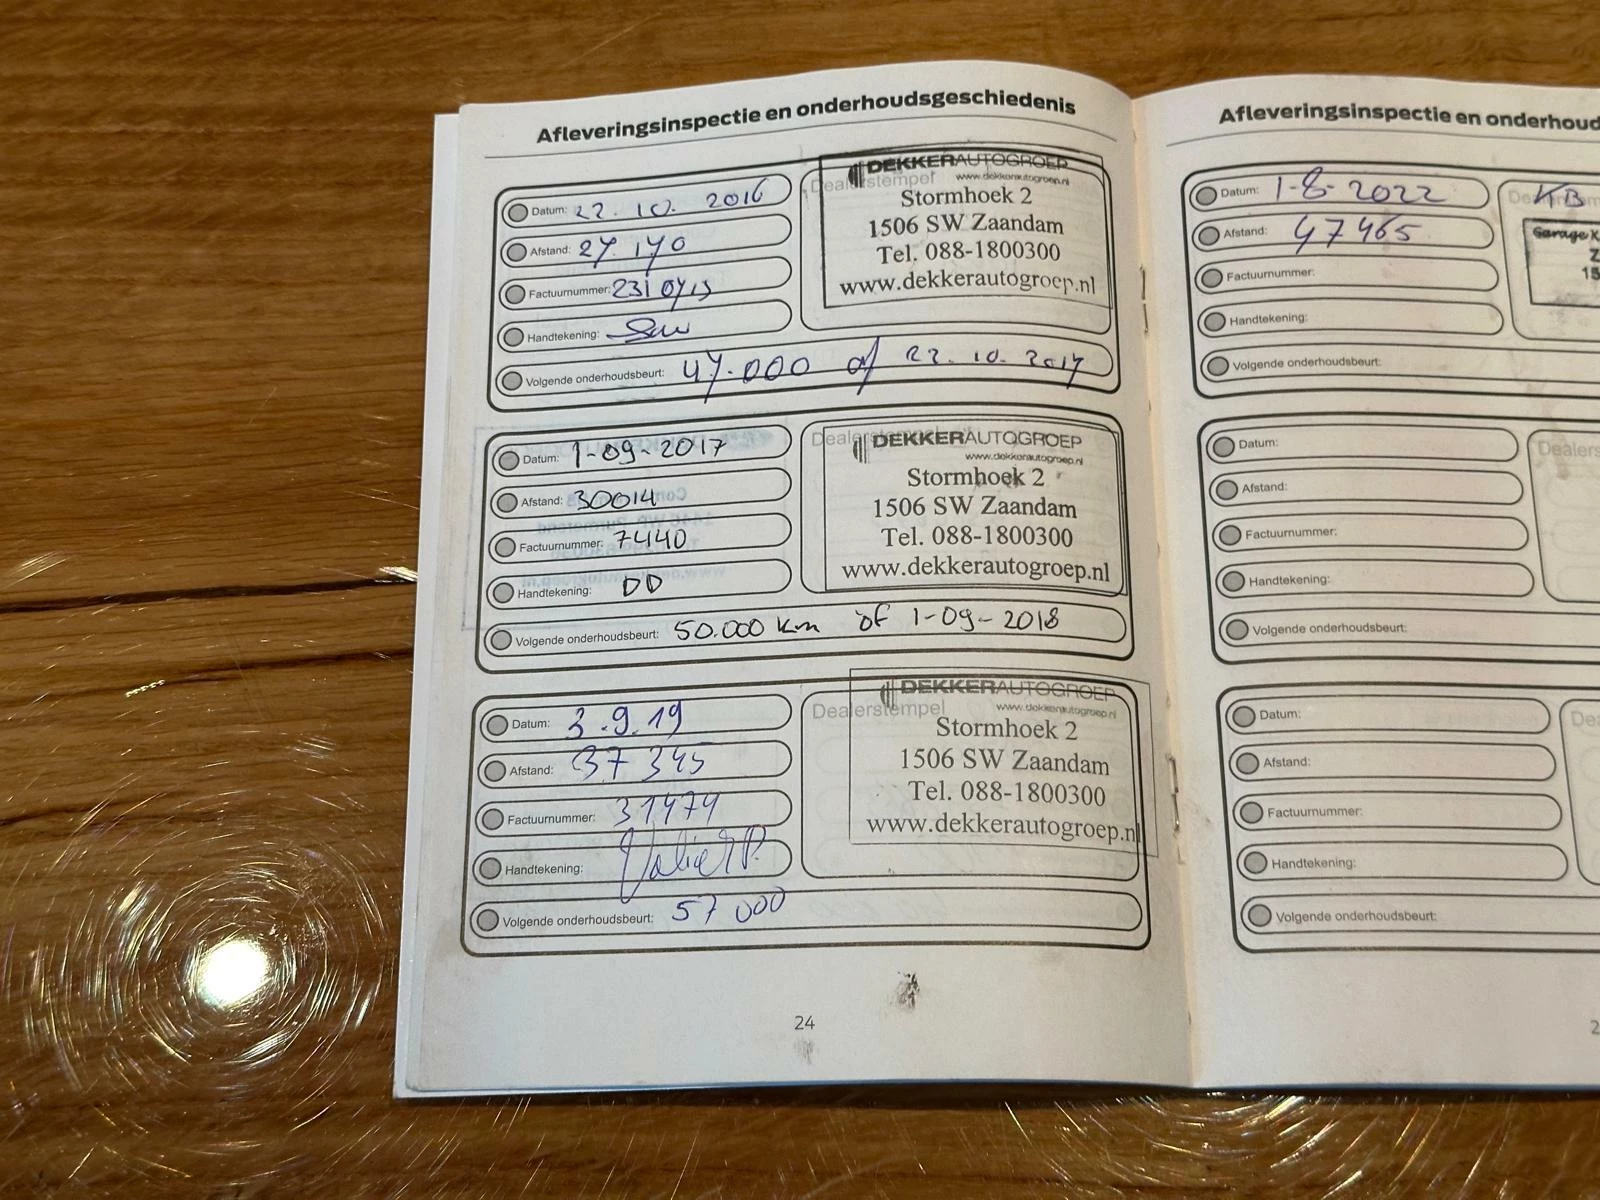 Afleveringsinspectie en onderhoudsgeschiedenis
Datum: 22.10. 2016
Afstand: 27.170
Factuurnummer:
Handtekening:
Volgende onderhoudsbeurt: 47.000 of 22.10.2017
Dealerstempel
DEKKERAUTOGROEP
www.dekkerautogroep.nl
Stormhoek 2
1506 SW Zaandam
Tel. 088-1800300
www.dekkerautogroep.nl
Datum: 1-09-2017
Afstand: 30014
Factuurnummer: 7440
Handtekening: DD
Volgende onderhoudsbeurt: 50.000 km of 1-09-2018
DEKKERAUTOGROEP
www.dekkerautogroep.nl
Stormhoek 2
1506 SW Zaandam
Tel. 088-1800300
www.dekkerautogroep.nl
Datum: 3.9.19
Afstand: 37 345
Factuurnummer: 31474
Handtekening:
Volgende onderhoudsbeurt: 57 000
Dealerstempel
DEKKERAUTOGROEP
www.dekkerautogroep.nl
Stormhoek 2
1506 SW Zaandam
Tel. 088-1800300
www.dekkerautogroep.nl
24
Afleveringsinspectie en onderhoud
Datum: 1-8-2022
Afstand: 47465
Factuurnummer:
Handtekening:
Volgende onderhoudsbeurt:
KB
Garage K
Z
15
Datum:
Afstand:
Factuurnummer:
Handtekening:
Volgende onderhoudsbeurt:
Dealers
Datum:
Afstand:
Factuurnummer:
Handtekening:
Volgende onderhoudsbeurt:
Dea
2